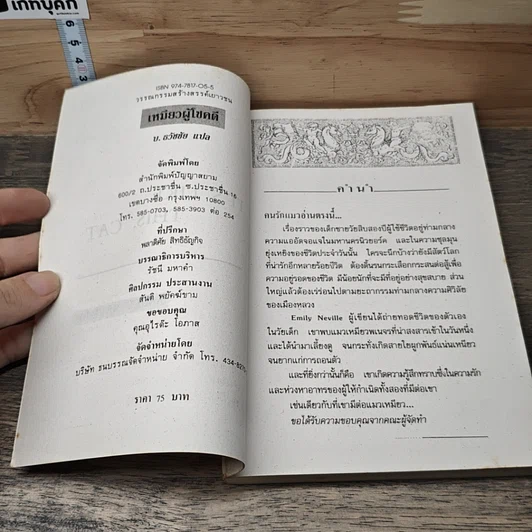 เก๋าบุ๊คก์
ISBN 974-7817-05-5
วรรณกรรมสร้างสรรค์เยาวชน
เหมียวผู้โชคดี
น. ธวัชชัย แปล
จัดพิมพ์โดย
สำนักพิมพ์ปัญญาสยาม
600/2 ถ.ประชาชื่น ซ.ประชาชื่น 16
เขตบางซื่อ กรุงเทพฯ 10800
โทร. 585-0703, 585-3903 ต่อ 254
ที่ปรึกษา
พลาดิศัย สิทธิธัญกิจ
บรรณาธิการบริหาร
รัชนี มหาคำ
ศิลปกรรม ประสานงาน
สันติ พยัคฆ์ขาม
ขอขอบคุณ
คุณอุไรต๊ะ โอภาส
จัดจำหน่ายโดย
บริษัท ธนบรรณจัดจำหน่าย จำกัด โทร. 434-82
ราคา 75 บาท
คำนำ
คนรักแมวอ่านตรงนี้...
เรื่องราวของเด็กชายวัยสิบสองปีผู้ใช้ชีวิตอยู่ท่ามกลาง
ความแออัดจอแจในมหานครนิวยอร์ค และในความชุลมุน
ยุ่งเหยิงของชีวิตประจำวันนั้น ใครจะนึกบ้างว่ายังมีสัตว์โลก
ที่น่ารักอีกหลายร้อยชีวิต ต้องดิ้นรนกระเสือกกระสนต่อสู้เพื่อ
ความอยู่รอดของชีวิต มีน้อยนักที่จะมีที่อยู่อย่างสุขสบาย ส่วน
ใหญ่แล้วต้องเร่ร่อนไปตามยถากรรมท่ามกลางความศิวิลัย
ของเมืองหลวง
Emily Neville ผู้เขียนได้ถ่ายทอดชีวิตของตัวเอง
ในวัยเด็ก เขาพบแมวเหมียวพเนจรที่น่าสงสารเข้าในวันหนึ่ง
และได้นำมาเลี้ยงดู จนกระทั่งเกิดสายใยผูกพันธ์แน่นเหนียว
จนยากแก่การถอนตัว
และที่ยิ่งกว่านั้นก็คือ เขาเกิดความรู้สึกทราบซึ้งในความรัก
และห่วงหาอาทรของผู้ให้กำเนิดทั้งสองที่มีต่อเขา
เช่นเดียวกับที่เขามีต่อแมวเหมียว...
ขอได้รับความขอบคุณจากคณะผู้จัดทำ